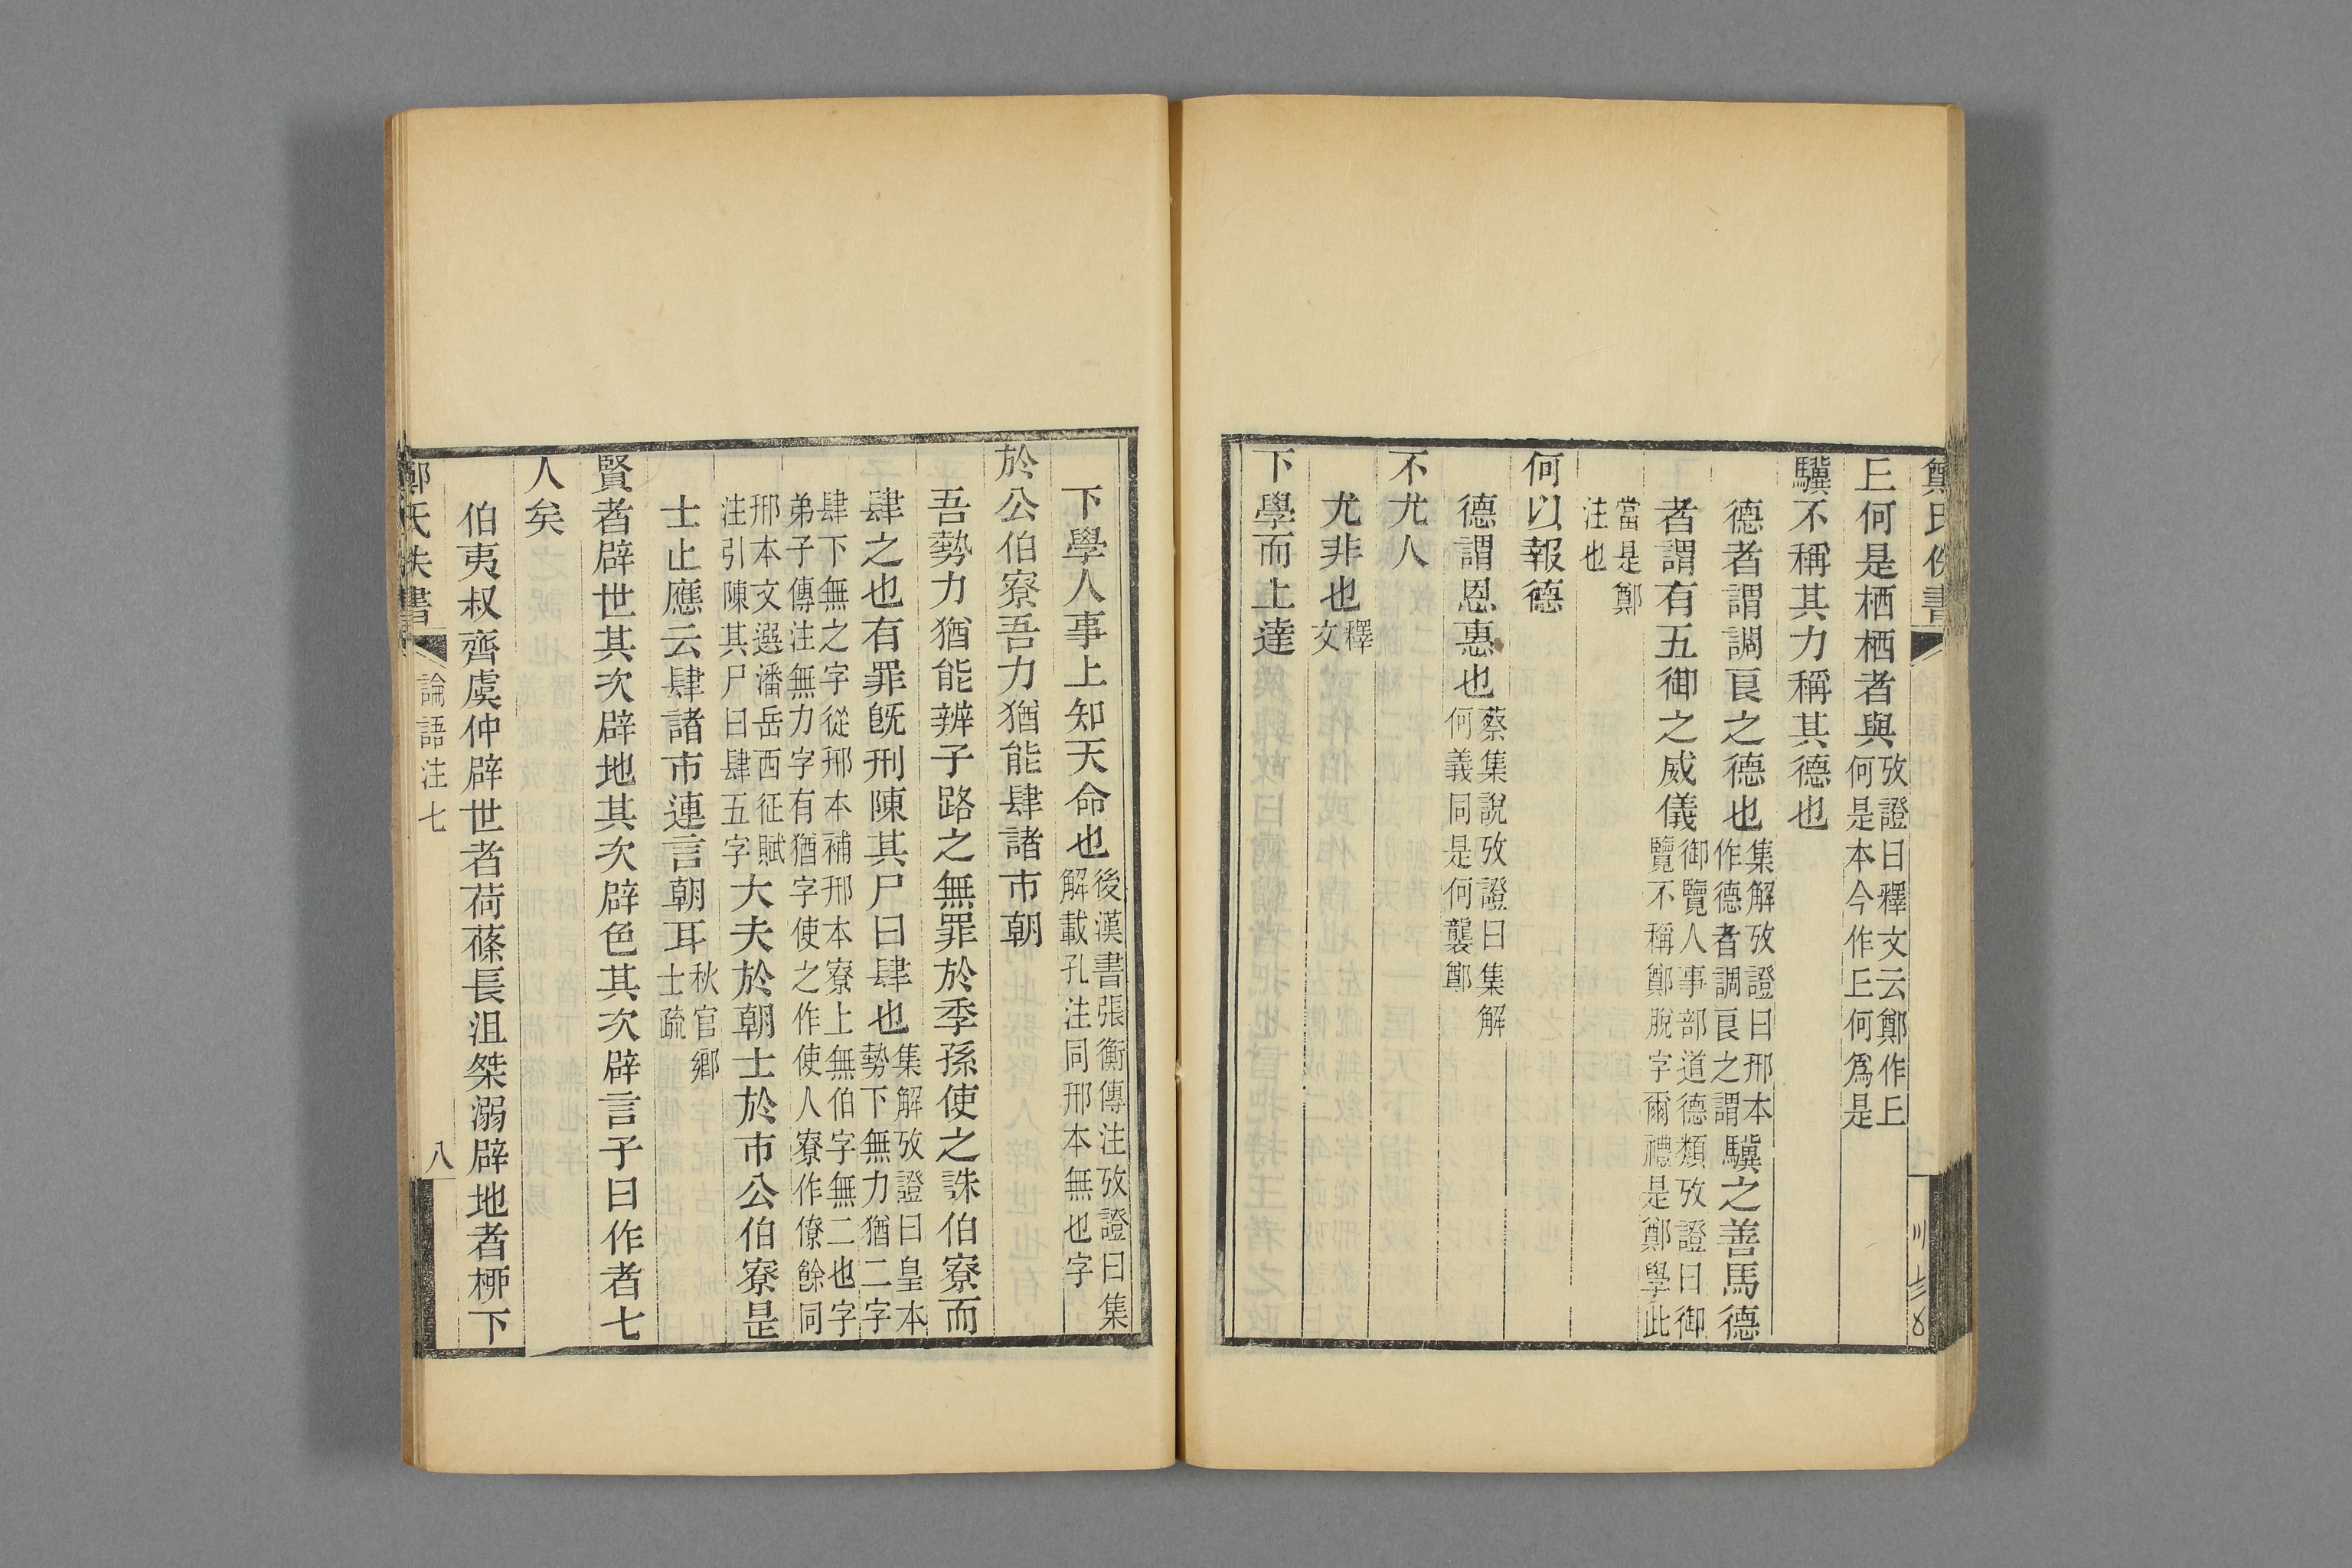 鄭氏佚書
丘何是栖栖者與攷證曰釋文云鄭作丘
何是本今作丘何爲是
驥不稱其力稱其德也
德者謂調良之德也集解攷證曰邢本
作德者調良之謂驥之善馬德
者謂有五御之威儀御覽人事部道德類攷證曰御
覽不稱鄭脫字爾禮是鄭學此
當是鄭
注也
何以報德
德謂恩惠也蔡集說攷證曰集解
何義同是何襲鄭
不尤人
尤非也釋
文
下學而上達
下學人事上知天命也後漢書張衡傳注攷證曰集
解載孔注同邢本無也字
於公伯寮吾力猶能肆諸市朝
吾勢力猶能辨子路之無罪於季孫使之誅伯寮而
肆之也有罪旣刑陳其尸曰肆也集解攷證曰皇本
勢下無力猶二字
肆下無之字從邢本補邢本寮上無伯字無二也字
弟子傳注無力字有猶字使之作使人寮作僚餘同
邢本文選潘岳西征賦
注引陳其尸曰肆五字大夫於朝士於市公伯寮是
士止應云肆諸市連言朝耳秋官鄉
士疏
賢者辟世其次辟地其次辟色其次辟言子曰作者七
人矣
伯夷叔齊虞仲辟世者荷蓧長沮桀溺辟地者柳下
鄭氏佚書
論語注七
八